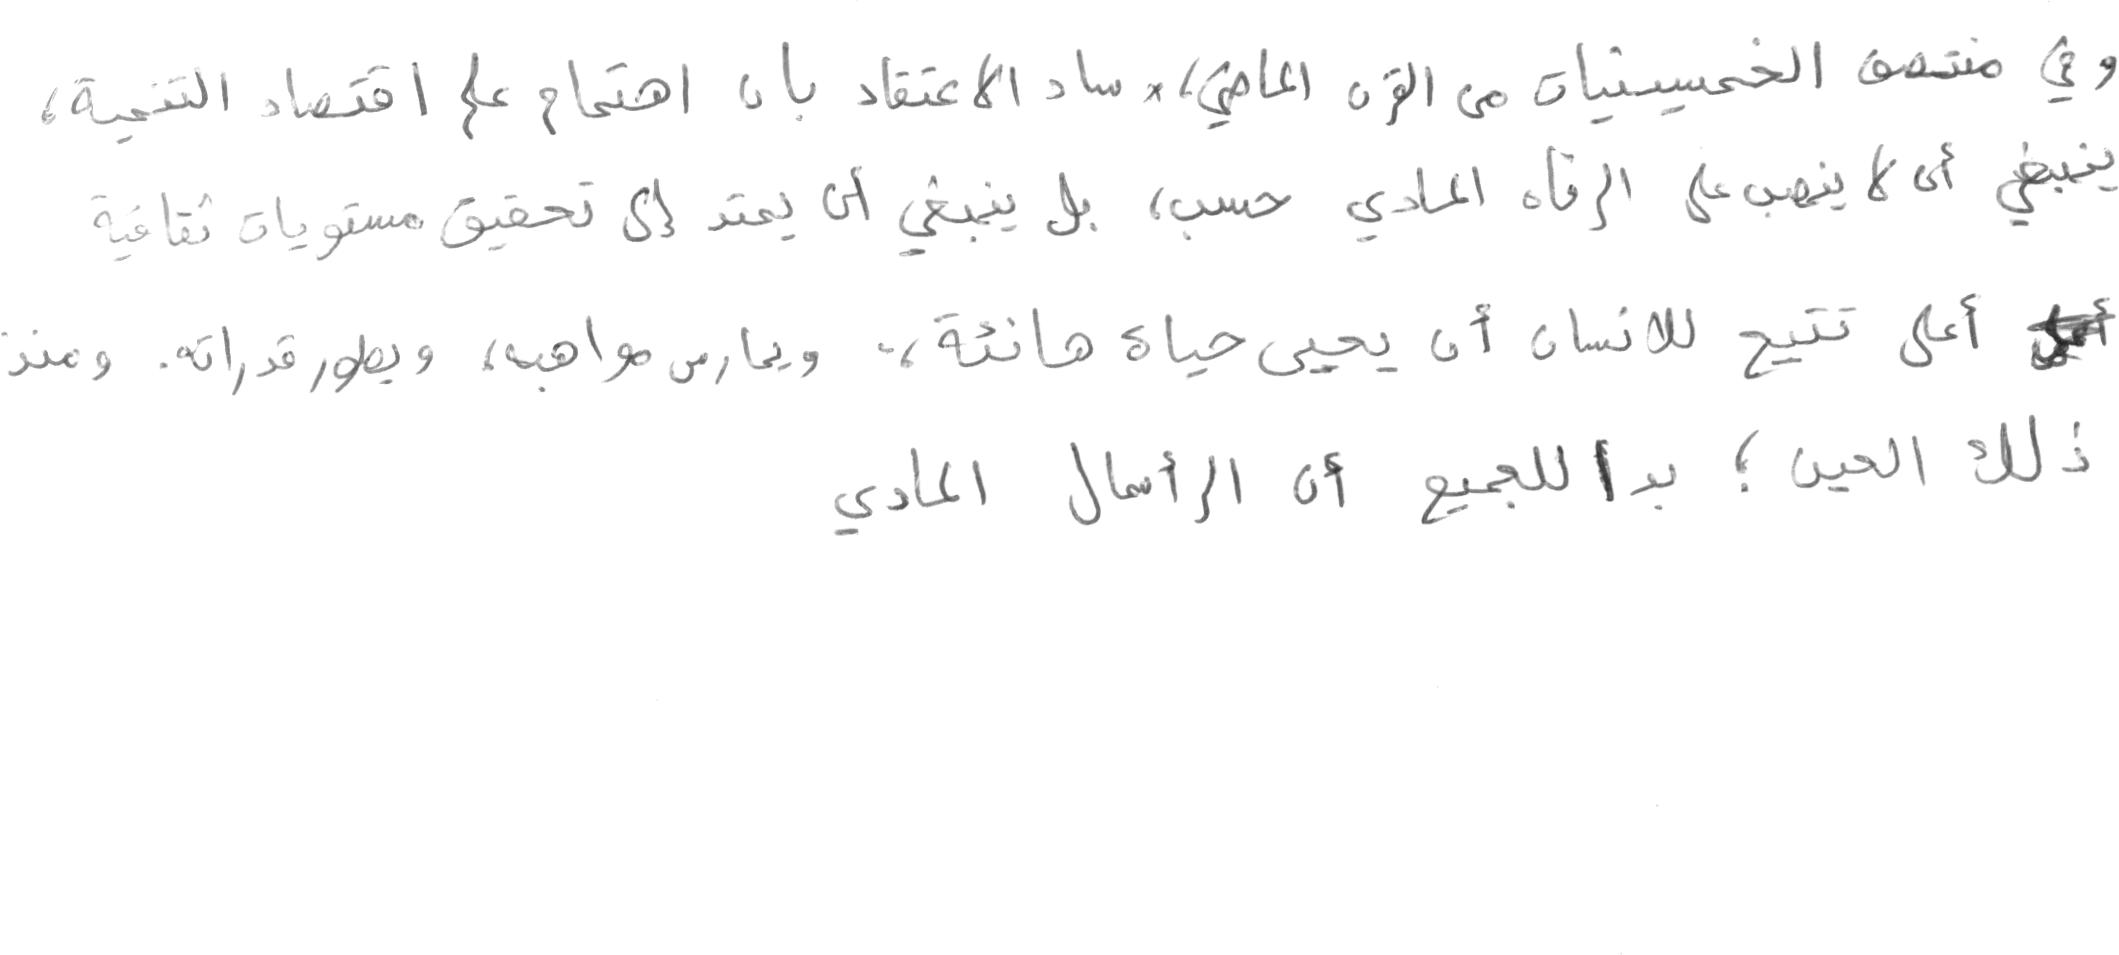 وفي منتصف الخمسينيات من القرن الماضي، ساد الاعتقاد بأن اهتمام علم اقتصاد التنمية،
ينبغي أن لا ينصب على الرفاه المادي حسب، بل ينبغي أن يمتد إلى تحقيق مستويات ثقافية
أعلى تتيح للانسان أن يحيى حياة هانئة، ويمارس مواهبه، ويطور قدراته. ومنذ
ذلك الحين؛ بدا للجميع أن الرأسمال المادي